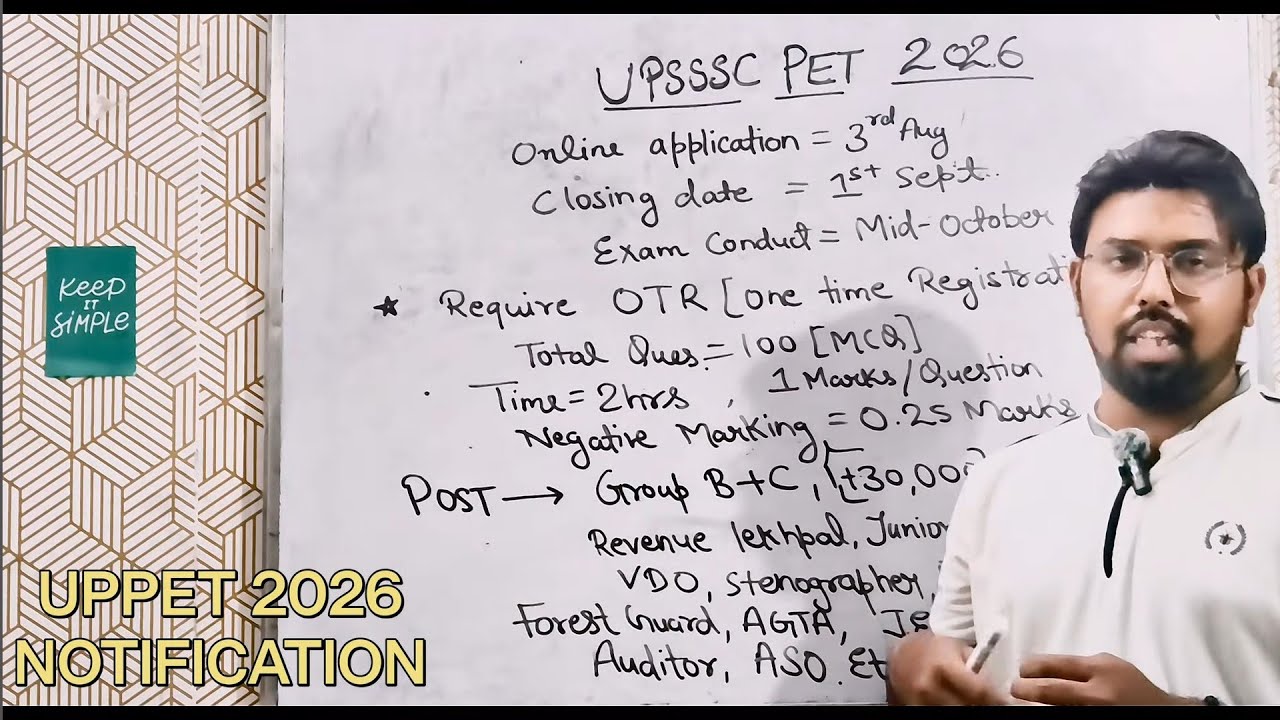 UPSSSC PET 2026
Online application = 3rd Aug
Closing date = 1st Sept..
Exam Conduct = Mid-October
★ Require OTR [One time Registrati
Total Ques = 100 [MCQ]
Time = 2hrs , 1 Marks/Question
Negative Marking = 0.25 Marks
POST → Group B+C, [+30,000
Revenue lekhpal, Junior
VDO, Stenographer,
Forest Guard, AGTA,
Auditor, ASO. Et
KEEP
IT
SiMPLE
UPPET 2026
NOTIFICATION